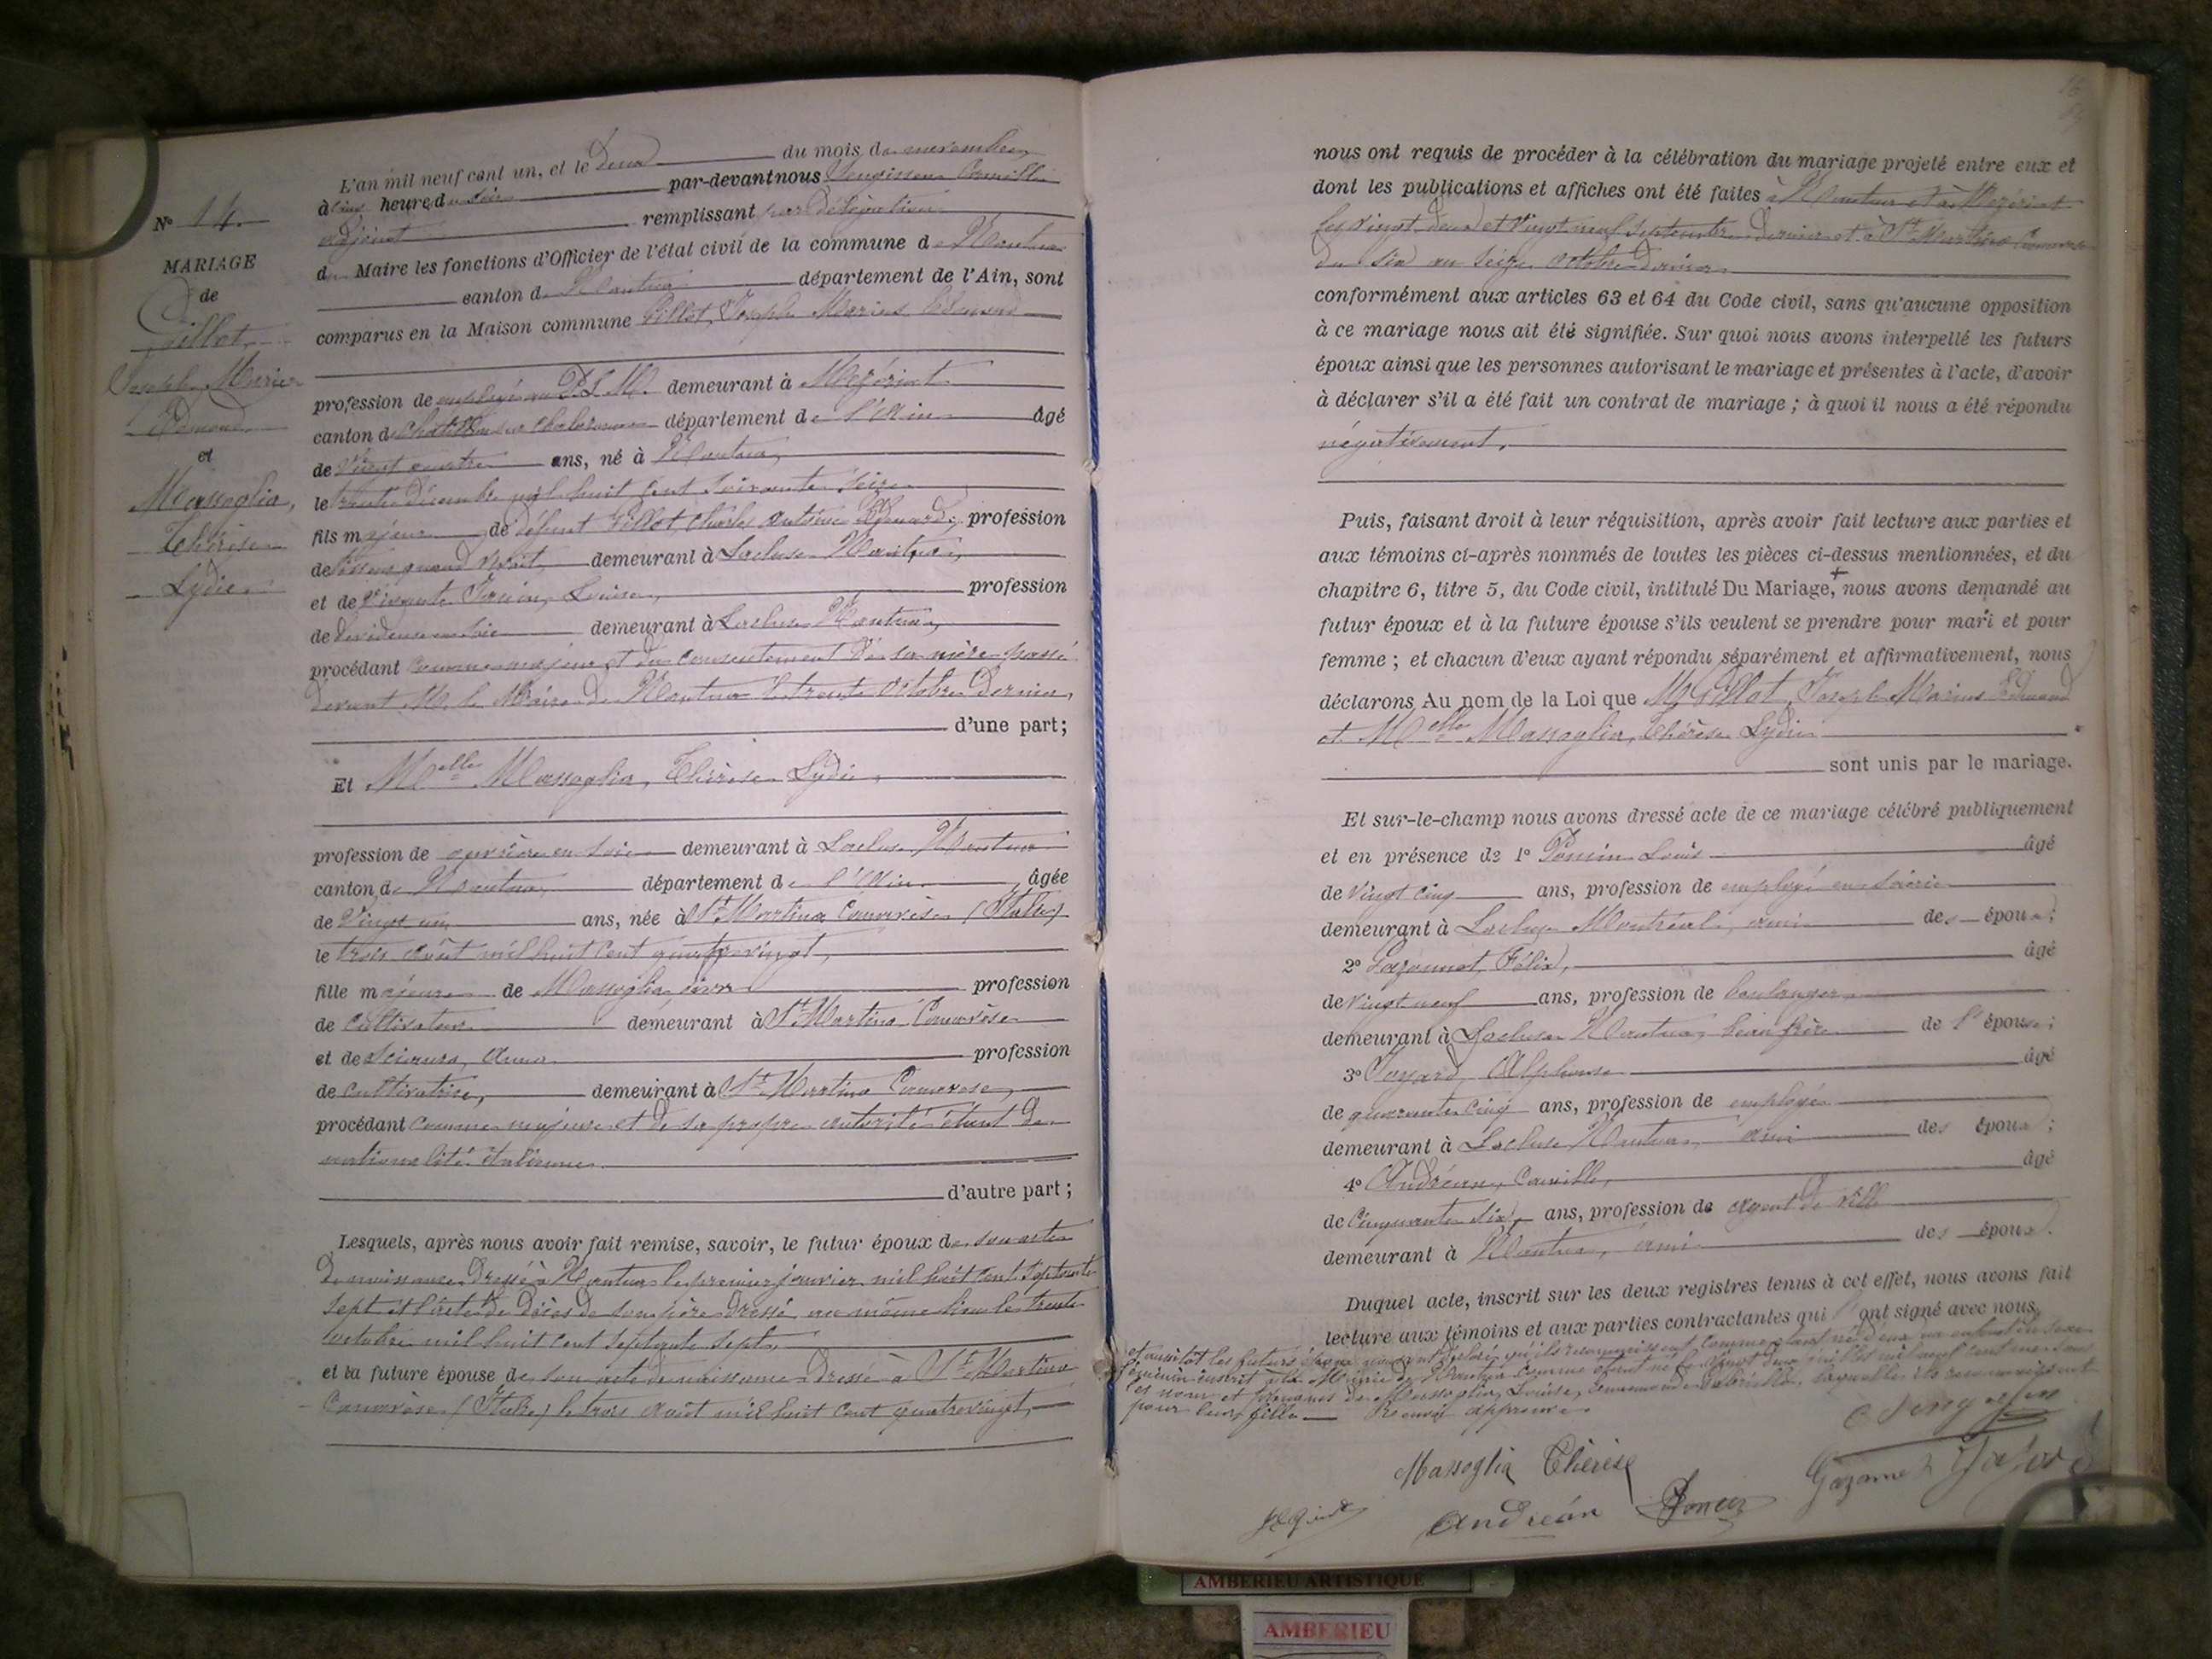 N° 14.
MARIAGE
de
Gillot,
Joseph Marius
Edmond
et
Massoglia,
Thérèse
Lydie.
L'an mil neuf cent un, et le deux du mois de novembre,
à cinq heures du soir par-devant nous Camille
adjoint remplissant par délégation
du Maire les fonctions d'Officier de l'état civil de la commune de Nantua
canton de Nantua département de l'Ain, sont
comparus en la Maison commune Gillot, Joseph Marius Edmond
profession de employé au P.L.M. demeurant à Mézériat
canton de Châtillon sur Chalaronne département de l'Ain âgé
de vingt quatre ans, né à Nantua,
le trente décembre mil huit cent soixante seize
fils majeur de défunt Gillot, Charles Antoine Edouard, profession
de quand vivait demeurant à Lacluse Nantua,
et de Louise, profession
de dévideuse en soie demeurant à Lacluse Nantua,
procédant comme majeur et du consentement de sa mère passé
devant M. le Maire de Nantua le trente octobre dernier,
d'une part;
Et Melle Massoglia, Thérèse Lydie,
profession de ouvrière en soie demeurant à Lacluse Nantua
canton de Nantua, département de l'Ain âgée
de vingt un ans, née à St Martino Canavèse (Italie)
le trois août mil huit cent quatre vingt,
fille majeure de Massoglia, profession
de cultivateur demeurant à St Martino Canavèse
et de Anna profession
de cultivatrice, demeurant à St Martino Canavese,
procédant comme majeure et de sa propre autorité étant de
nationalité italienne
d'autre part;
Lesquels, après nous avoir fait remise, savoir, le futur époux de son acte
de naissance dressé à Nantua le premier janvier mil huit cent septante
sept et l'acte de décès de son père dressé au même lieu le trente
octobre mil huit cent septante sept,
et la future épouse de son acte de naissance dressé à St Martino
Canavèse (Italie) le trois août mil huit cent quatre vingt,
nous ont requis de procéder à la célébration du mariage projeté entre eux et
dont les publications et affiches ont été faites à Nantua et à Mézériat
les vingt deux et vingt neuf septembre dernier et à St Martino Canavese
du six au seize octobre dernier
conformément aux articles 63 et 64 du Code civil, sans qu'aucune opposition
à ce mariage nous ait été signifiée. Sur quoi nous avons interpellé les futurs
époux ainsi que les personnes autorisant le mariage et présentes à l'acte, d'avoir
à déclarer s'il a été fait un contrat de mariage; à quoi il nous a été répondu
négativement.
Puis, faisant droit à leur réquisition, après avoir fait lecture aux parties et
aux témoins ci-après nommés de toutes les pièces ci-dessus mentionnées, et du
chapitre 6, titre 5, du Code civil, intitulé Du Mariage, + nous avons demandé au
futur époux et à la future épouse s'ils veulent se prendre pour mari et pour
femme; et chacun d'eux ayant répondu séparément et affirmativement, nous
déclarons Au nom de la Loi que M. Gillot, Joseph Marius Edmond
et Melle Massoglia, Thérèse Lydie
sont unis par le mariage.
Et sur-le-champ nous avons dressé acte de ce mariage célébré publiquement
et en présence de 1° Poncin Louis âgé
de vingt cinq ans, profession de employé en soierie
demeurant à Lacluse Montréal, ami des époux;
2° Gazonnet, Félix, âgé
de vingt neuf ans, profession de boulanger
demeurant à Lacluse Nantua, beau frère de l'épouse;
3° Alphonse âgé
de quarante cinq ans, profession de employé
demeurant à Lacluse Nantua, ami des époux;
4° Andréan, Camille, âgé
de cinquante six, ans, profession de agent de ville
demeurant à Nantua, ami des époux.
Duquel acte, inscrit sur les deux registres tenus à cet effet, nous avons fait
lecture aux témoins et aux parties contractantes qui l'ont signé avec nous.
et aussitôt les futurs époux nous ont déclaré qu'ils reconnaissent comme étant né d'eux un enfant du sexe
féminin inscrit à la Mairie de Nantua comme étant né le vingt deux mil neuf cent un sous
les nom et prénoms de Massoglia, Louise, laquelle ils reconnaissent
pour leur fille. Renvoi approuvé.
Massoglia Thérèse
Andréan Poncin Gazonnet
AMBERIEU ARTISTIQUE
AMBERIEU